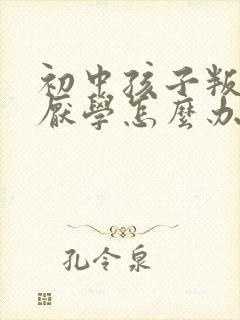 初中孩子叛
厭學怎麼办
孔令泉